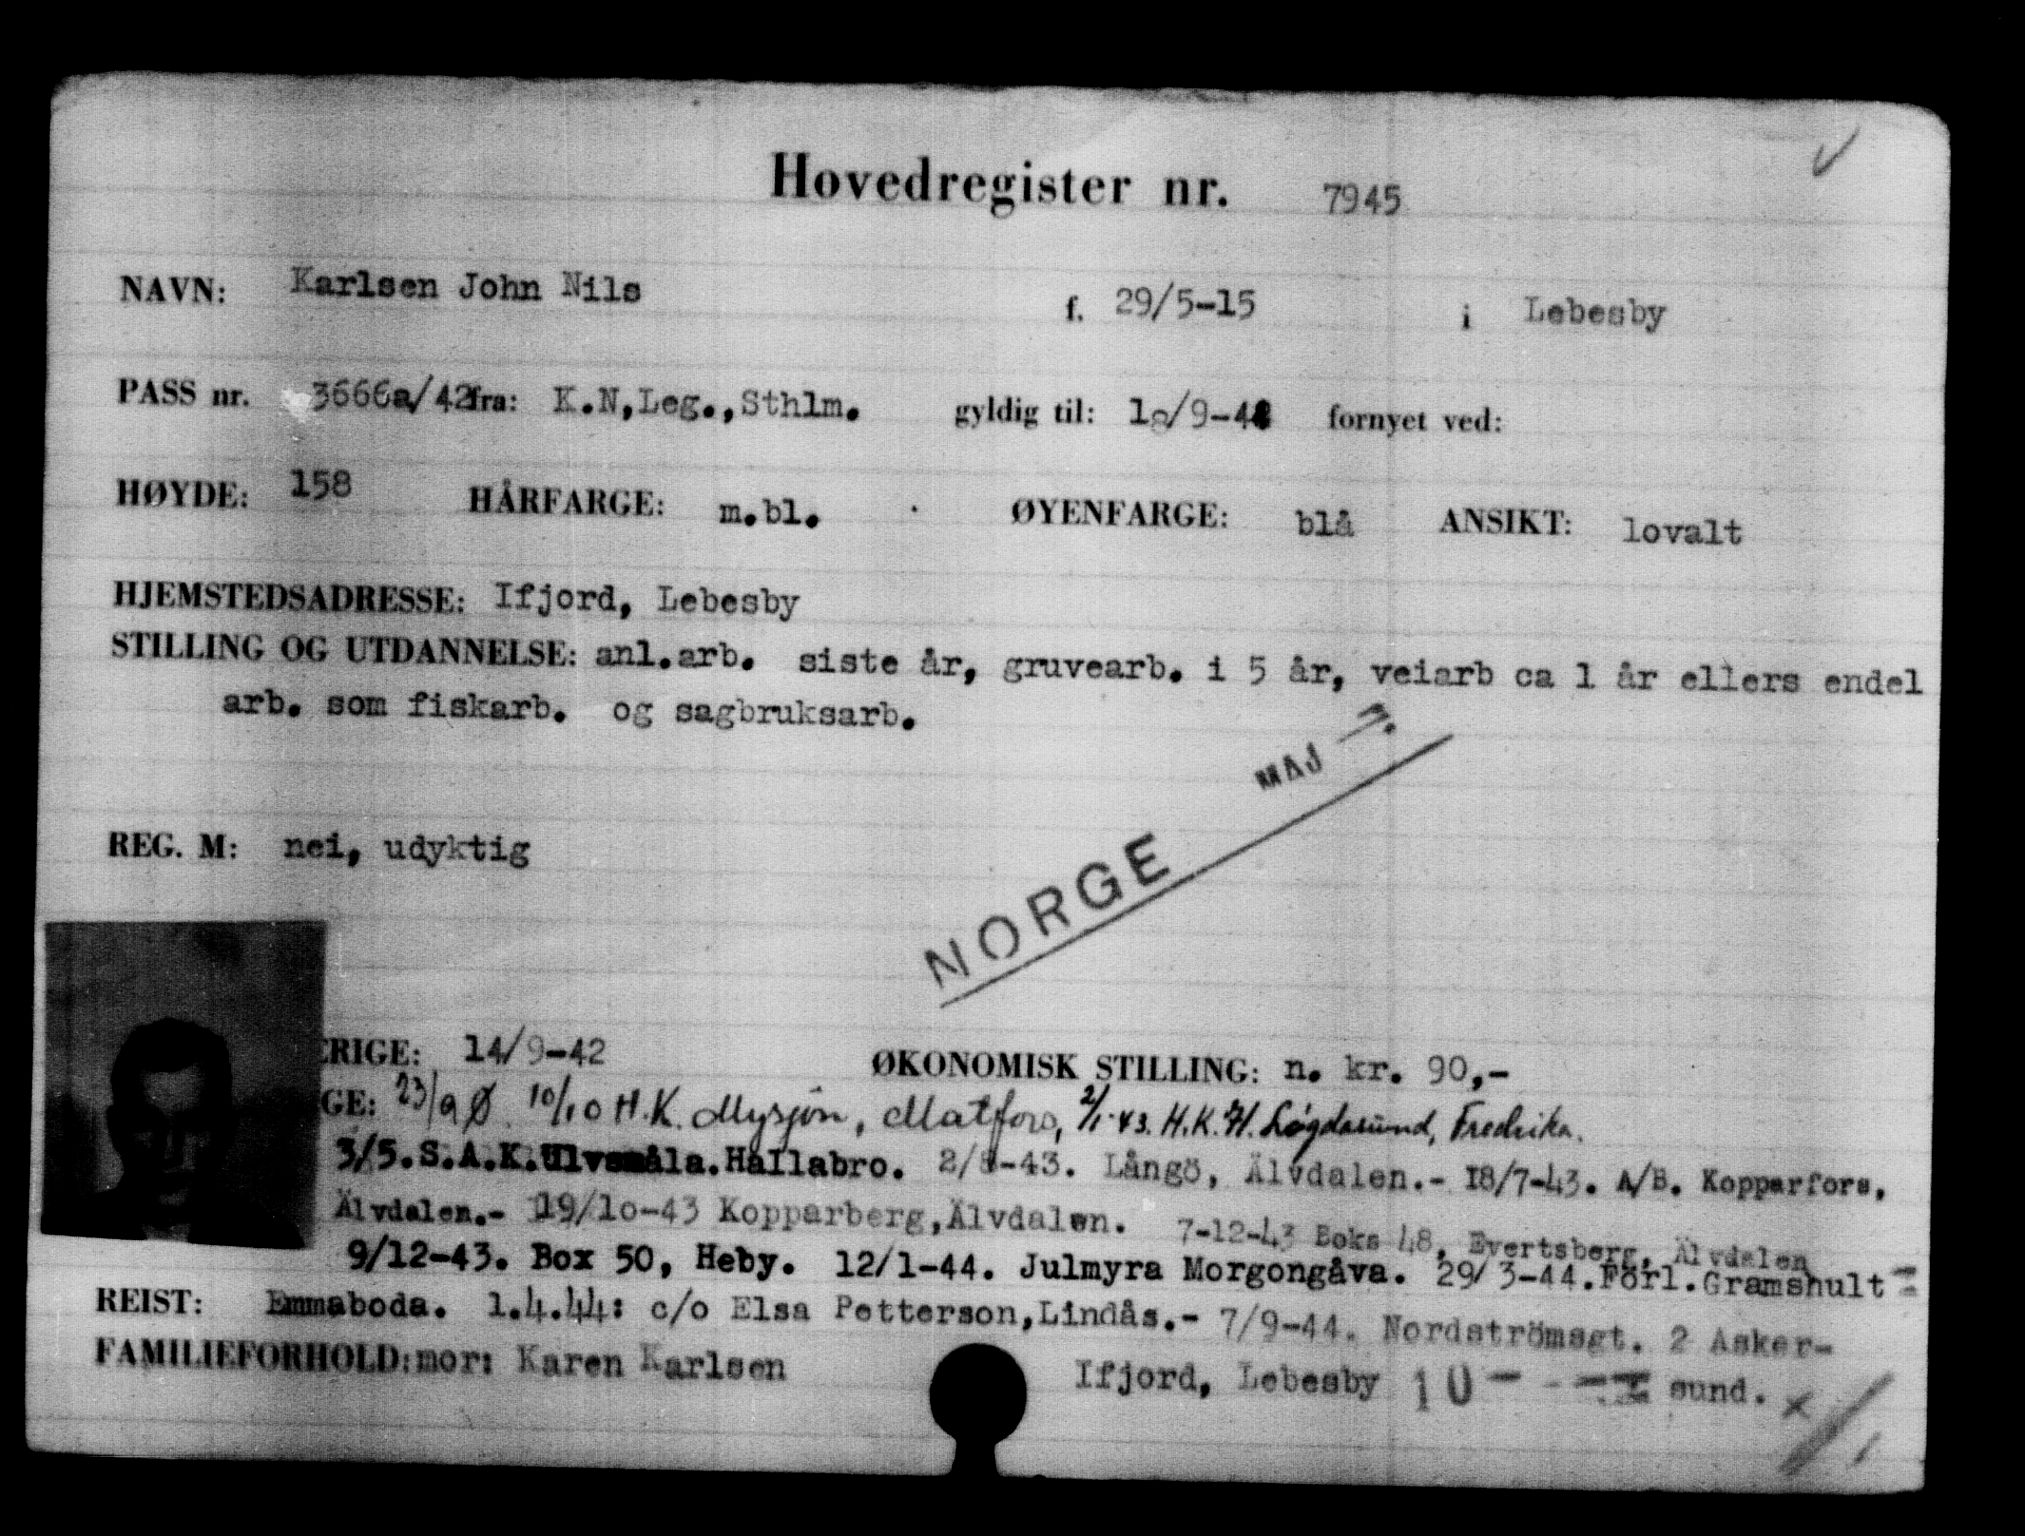 Hovedregister nr. 7945
NAVN: Karlsen John Nils f. 29/5-15 i Lebesby
PASS nr. 3666a/42 fra: K.N,Leg.,Sthlm. gyldig til: 18/9-44 fornyet ved:
HØYDE: 158 HÅRFARGE: m.bl. ØYENFARGE: blå ANSIKT: lovalt
HJEMSTEDSADRESSE: Ifjord, Lebesby
STILLING OG UTDANNELSE: anl.arb. siste år, gruvearb. i 5 år, veiarb ca 1 år ellers endel
arb. som fiskarb. og sagbruksarb.
MAJ
REG. M: nei, udyktig
NORGE
ERIGE: 14/9-42 ØKONOMISK STILLING: n. kr. 90,-
GE: 23/9 Ø. 10/10 H.K. Mysjön, Matfors, 2/1-43. H.K.H. Lögdasund, Fredrika.
3/5.S.A.K.Ulvsmåla.Hallabro. 2/8-43. Långö, Älvdalen.- 18/7-43. A/B. Kopparfors,
Älvdalen.- 19/10-43 Kopparberg,Älvdalen. 7-12-43 Boks 48, Evertsberg, Älvdalen
9/12-43. Box 50, Heby. 12/1-44. Julmyra Morgongåva. 29/3-44.Förl.Gramshult
REIST: Emmaboda. 1.4.44: c/o Elsa Petterson,Lindås.- 7/9-44. Nordströmsgt. 2 Asker-
FAMILIEFORHOLD: mor: Karen Karlsen Ifjord, Lebesby 10 sund. x